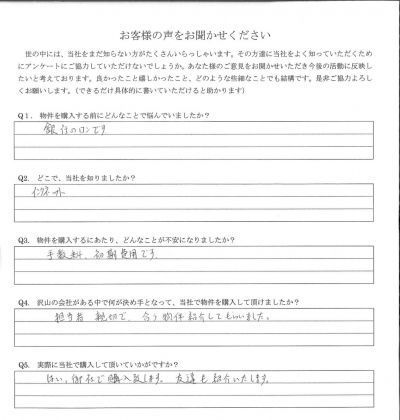 お客様の声をお聞かせください
世の中には、当社をまだ知らない方がたくさんいらっしゃいます。その方達に当社をよく知っていただくため
にアンケートにご協力していただけないでしょうか。あなた様のご意見をお聞かせいただき今後の活動に反映し
たいと考えております。良かったこと嬉しかったこと、どのような些細なことでも結構です。是非ご協力よろし
くお願いします。(できるだけ具体的に書いていただけると助かります)
Q1. 物件を購入する前にどんなことで悩んでいましたか？
銀行のロンです
Q2. どこで、当社を知りましたか？
インタネット
Q3. 物件を購入するにあたり、どんなことが不安になりましたか？
手数料、初期費用です。
Q4. 沢山の会社がある中で何が決め手となって、当社で物件を購入して頂けましたか？
担当者 親切で、合う物件紹介してもらいました。
Q5. 実際に当社で購入して頂いていかがですか？
はい、御社で購入致します。友達も紹介いたします。